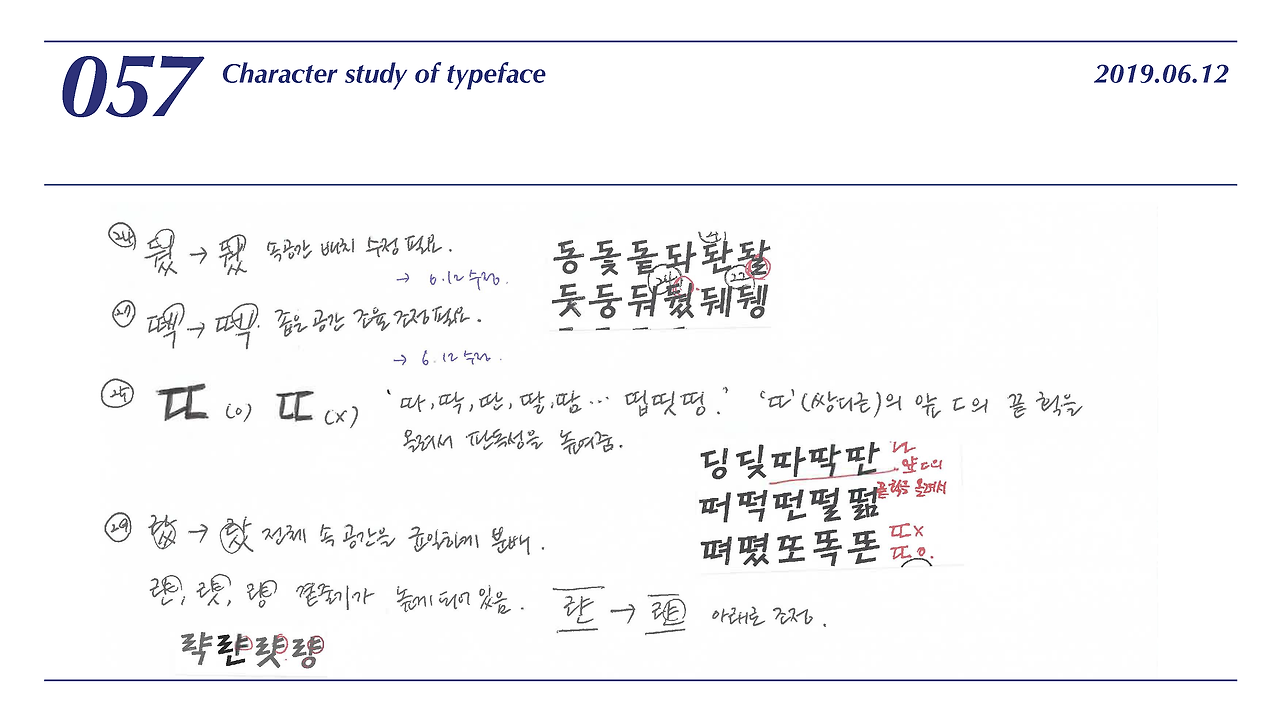 057 Character study of typeface 2019.06.12
24 뒀 → 뒀 속공간 배치 수정 필요.
→ 6.12 수정.
동 돛 돝 돠 돤 돨
24 22
둧 둥 둬 뒀 뒈 뒝
27 떽 → 떡. 좁은 공간 조율 조정 필요.
→ 6.12 수정.
25 ㄸ (o) ㄸ (x) ‘따, 딱, 딴, 딸, 땀 … 띱 띳 띵.’ ‘ㄸ’(쌍디귿)의 앞 ㄷ의 끝 획을
올려서 판독성을 높여줌.
딩 딪 따 딱 딴
앞 ㄷ의
끝 획을 올려서
떠 떡 떤 떨 떫
뗘 뗬 또 똑 똔
ㄸ x
ㄸ o.
29 랐 → 랐 전체 속 공간을 균일하게 분배.
랸, 럇, 량 곁줄기가 높게 되어 있음. 랸 → 랸 아래로 조정.
략 랸 럇 량